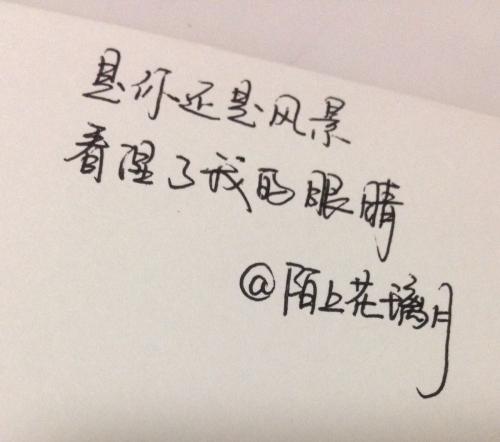 是你还是风景
看醒了我的眼睛
@陌上花璃月